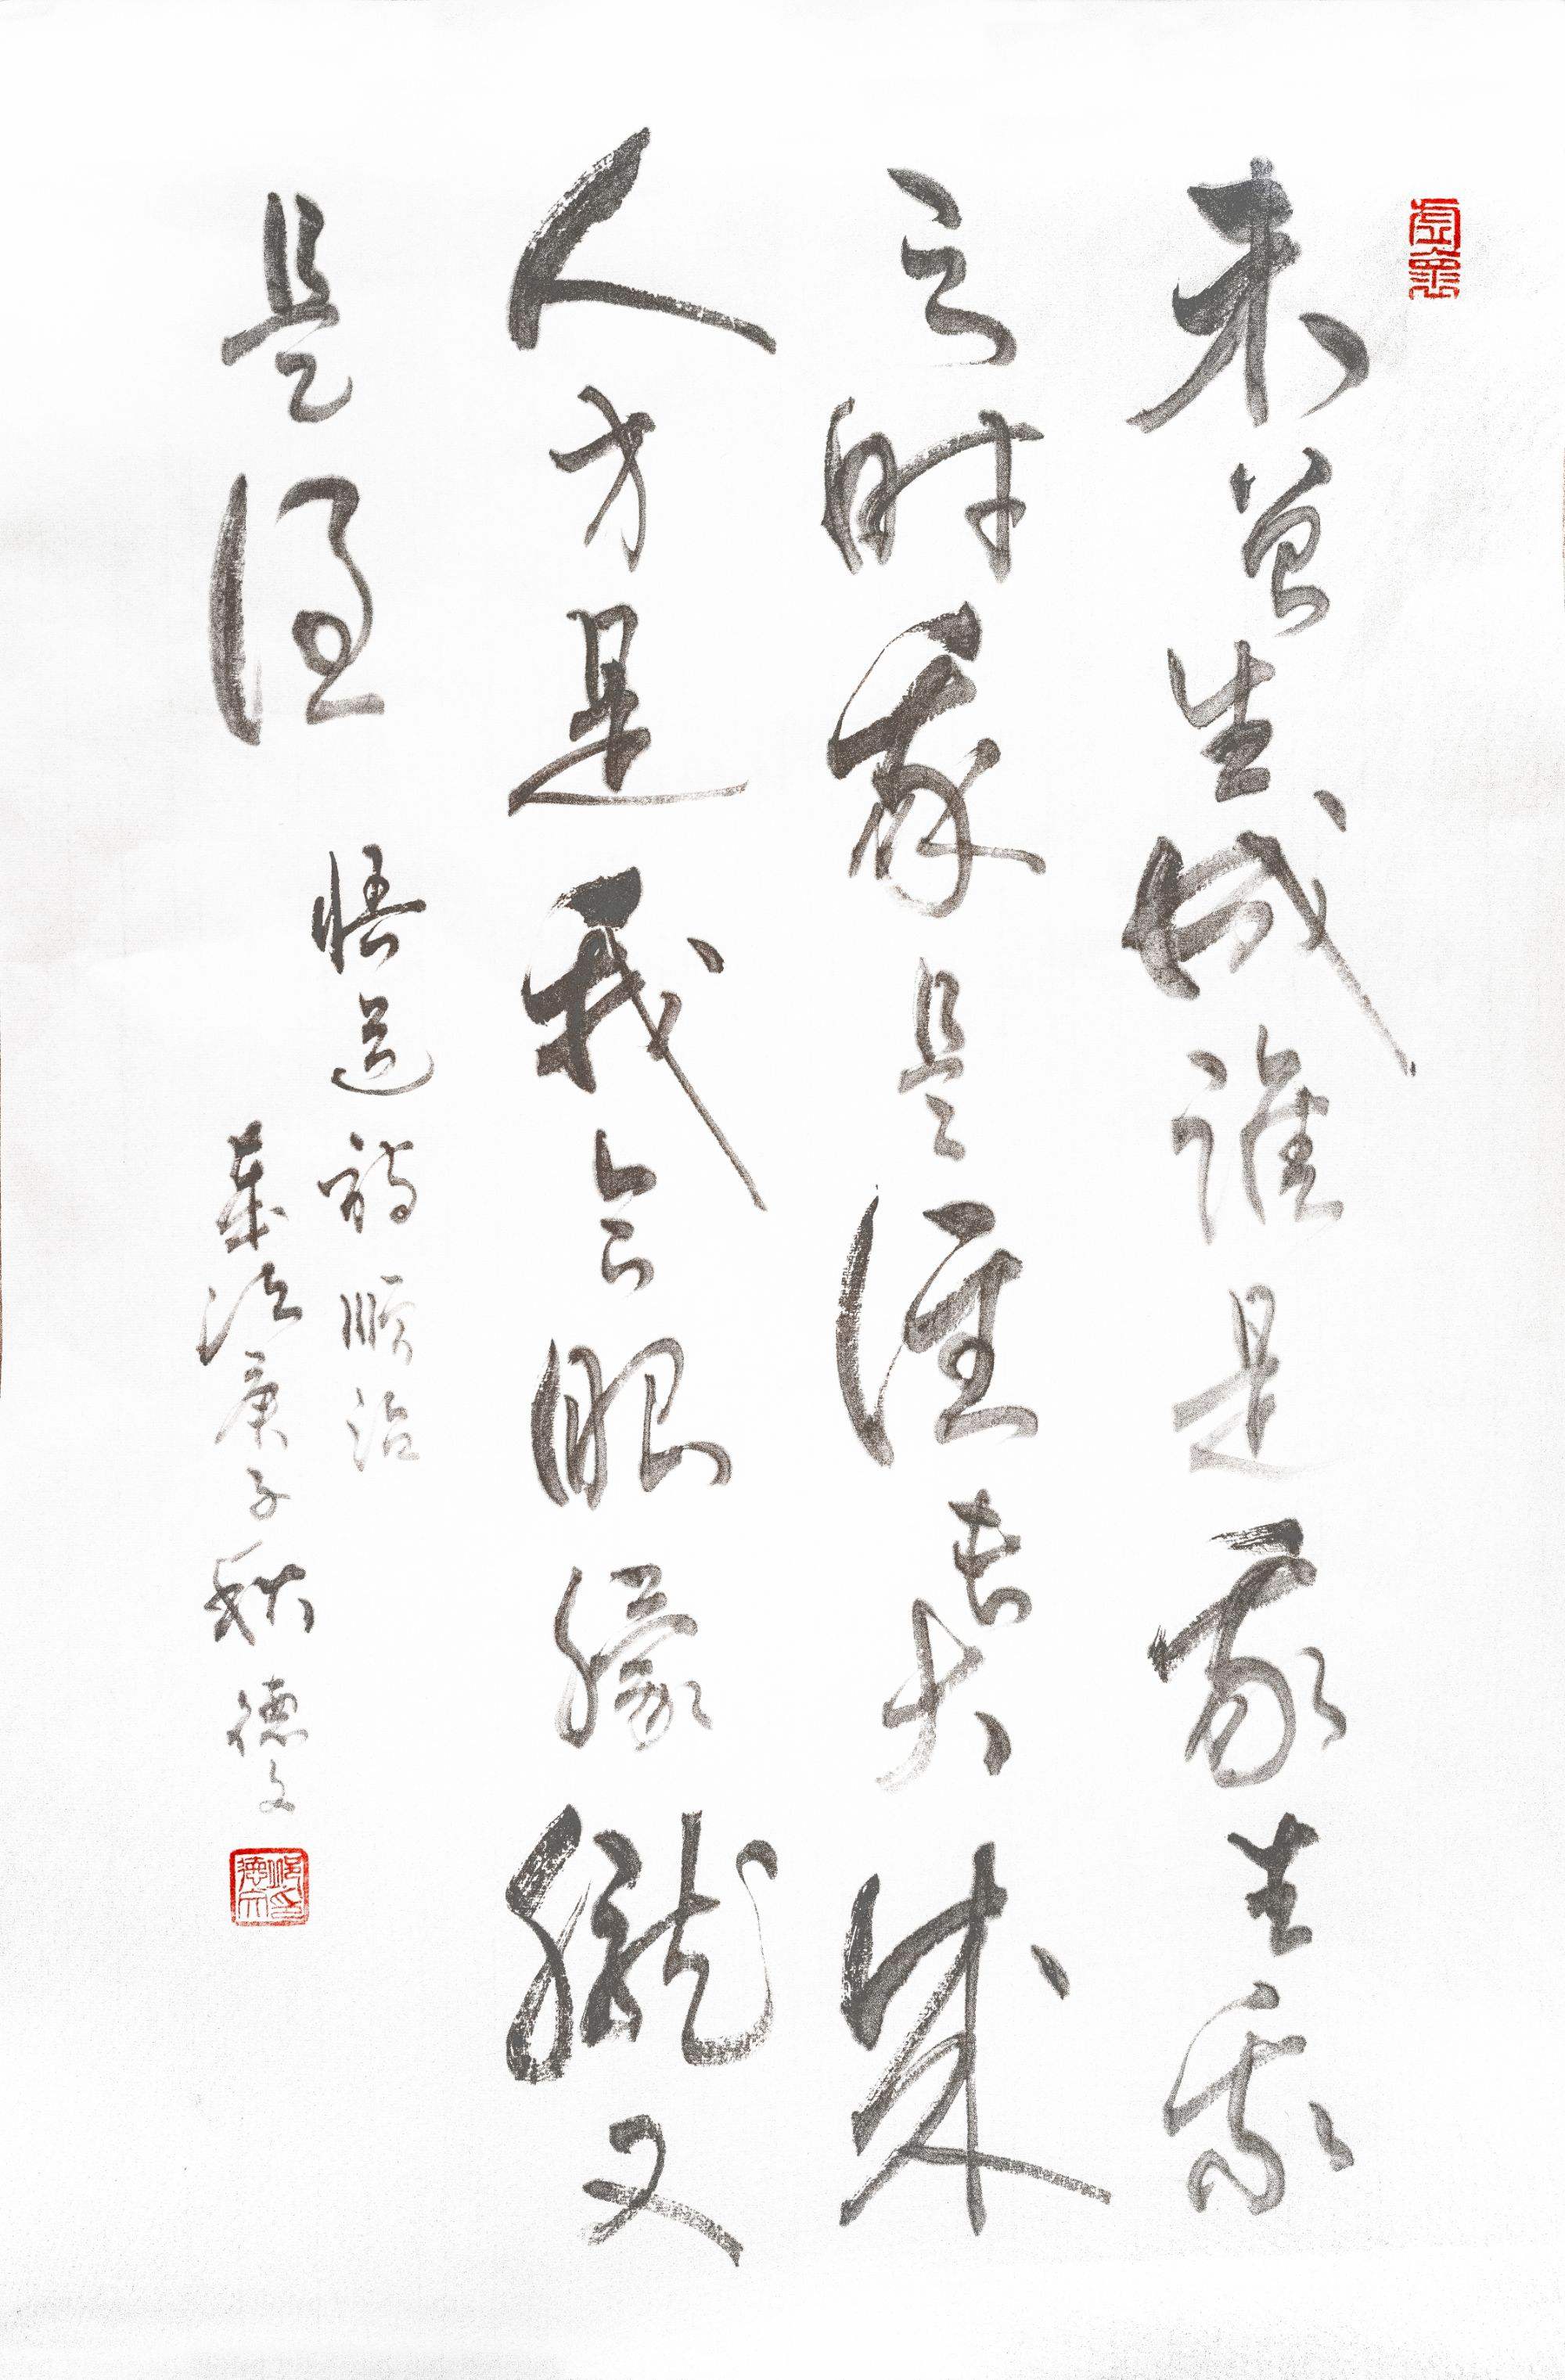 未曾生我誰是我生我
之时我是谁長大成
人方是我合眼朦朧又
是谁
悟道詩順治
東法庚子秋德文